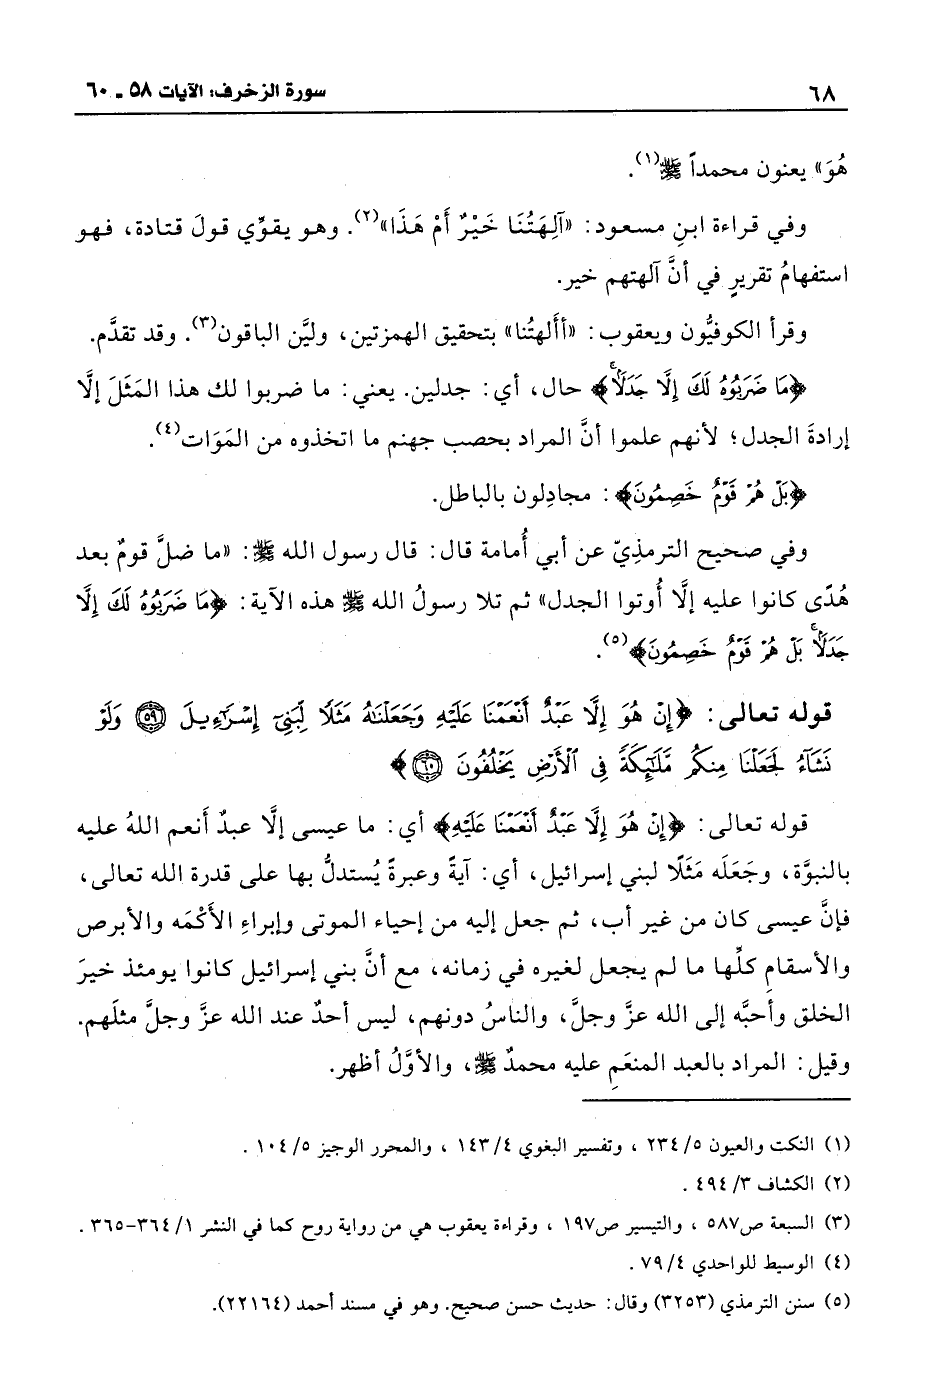 ٦٨ سورة الزخرف: الآيات ٥٨ ـ ٦٠
هُوَ» يعنون محمداً ﷺ(١).
وفي قراءة ابنِ مسعود: «آلِهَتُنَا خَيْرٌ أَمْ هَذَا»(٢). وهو يقوِّي قولَ قتادة، فهو
استفهامُ تقريرٍ في أنَّ آلهتهم خير.
وقرأ الكوفيُّون ويعقوب: «أألهتُنا» بتحقيق الهمزتين، وليَّن الباقون(٣). وقد تقدَّم.
﴿مَا ضَرَبُوهُ لَكَ إِلَّا جَدَلًاۚ﴾ حال، أي: جدلين. يعني: ما ضربوا لك هذا المَثَلَ إلَّا
إرادةَ الجدل؛ لأنهم علموا أنَّ المراد بحصب جهنم ما اتخذوه من المَوَات(٤).
﴿بَلْ هُمْ قَوْمٌ خَصِمُونَ﴾: مجادِلون بالباطل.
وفي صحيح الترمذِيّ عن أبي أُمامة قال: قال رسول الله ﷺ: «ما ضلَّ قومٌ بعد
هُدًى كانوا عليه إلَّا أُوتوا الجدل» ثم تلا رسولُ الله ﷺ هذه الآية: ﴿مَا ضَرَبُوهُ لَكَ إِلَّا
جَدَلًاۚ بَلْ هُمْ قَوْمٌ خَصِمُونَ﴾(٥).
قوله تعالى: ﴿إِنْ هُوَ إِلَّا عَبْدٌ أَنْعَمْنَا عَلَيْهِ وَجَعَلْنَٰهُ مَثَلًا لِّبَنِىٓ إِسْرَٰٓءِيلَ ٥٩ وَلَوْ
نَشَآءُ لَجَعَلْنَا مِنكُم مَّلَٰٓئِكَةً فِى ٱلْأَرْضِ يَخْلُفُونَ ٦٠﴾
قوله تعالى: ﴿إِنْ هُوَ إِلَّا عَبْدٌ أَنْعَمْنَا عَلَيْهِ﴾ أي: ما عيسى إلَّا عبدٌ أنعم اللهُ عليه
بالنبوَّة، وجَعَلَه مَثَلًا لبني إسرائيل، أي: آيةً وعبرةً يُستدلُّ بها على قدرة الله تعالى،
فإنَّ عيسى كان من غير أب، ثم جعل إليه من إحياء الموتى وإبراءِ الأَكْمَه والأبرص
والأسقامِ كلِّها ما لم يجعل لغيره في زمانه، مع أنَّ بني إسرائيل كانوا يومئذ خيرَ
الخلق وأحبَّه إلى الله عزَّ وجلَّ، والناسُ دونهم، ليس أحدٌ عند الله عزَّ وجلَّ مثلَهم.
وقيل: المراد بالعبد المنعَمِ عليه محمدٌ ﷺ، والأوَّلُ أظهر.
(١) النكت والعيون ٥/ ٢٣٤ ، وتفسير البغوي ٤/ ١٤٣ ، والمحرر الوجيز ٥/ ١٠٤ .
(٢) الكشاف ٣/ ٤٩٤ .
(٣) السبعة ص٥٨٧ ، والتيسير ص١٩٧ ، وقراءة يعقوب هي من رواية روح كما في النشر ١/ ٣٦٤-٣٦٥ .
(٤) الوسيط للواحدي ٤/ ٧٩ .
(٥) سنن الترمذي (٣٢٥٣) وقال: حديث حسن صحيح. وهو في مسند أحمد (٢٢١٦٤).